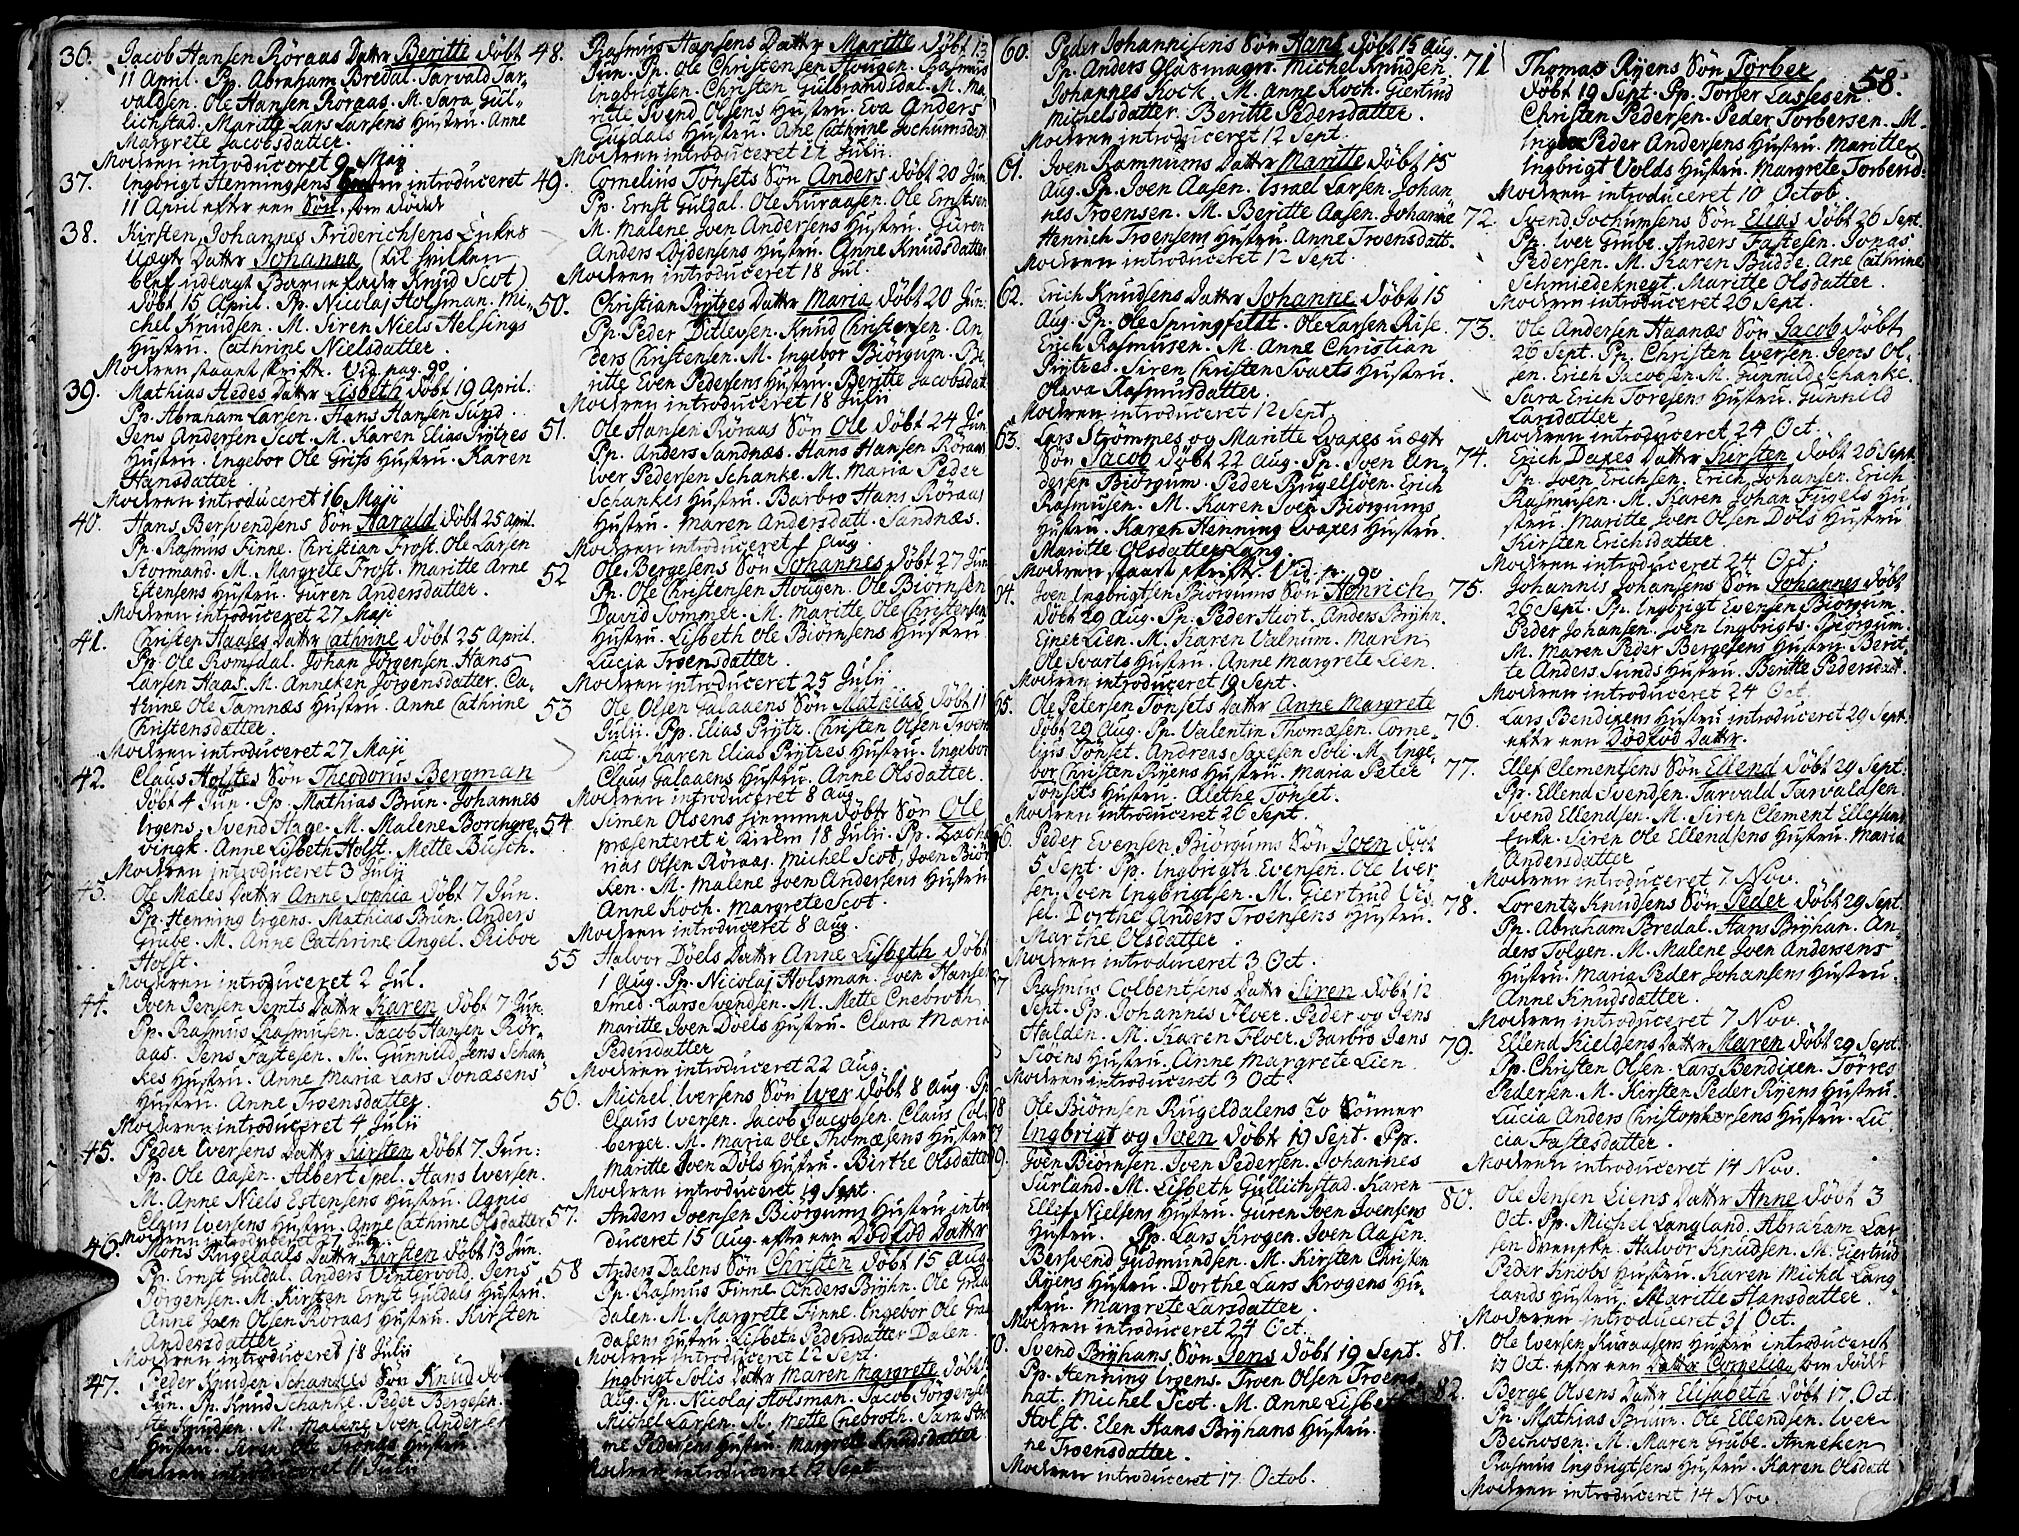 36. Jacob Hansen Röraas Dattr Beritte döbt
11 April. Pp. Abraham Bredal. Tarvald Tar-
valdsen. Ole Hansen Röraas. M. Sara Gül-
lichstad. Maritte Lars Larsens Hustru. Anne
Margrete Jacobsdatter.
Modren introduceret 9 Maji
37. Ingbrigt Henningsens Hustru introduceret
11 April efter een Sön, som
38. Kirsten Johannes Friderichsens Enkes
uægte Dattr Johanna (til hvilken
blef udlagt Barnefader Knud Scot)
döbt 15 April. Pp. Nicolaj Holsman. Mi-
chel Knudsen. M. Siren Niels Helsings
Hustru. Cathrine Nielsdatter.
Modren staaet skrifte. Vid. pag. 90.
39. Mathias Hedes Dattr Lisbeth döbt 19 April.
Pp. Abraham Larsen. Hans Hansen Sund.
Jens Andersen Scot. M. Karen Elias Prytzes
Hustru. Ingebor Ole Griss Hustru. Karen
Hansdatter.
Modren introduceret 16 Maji
40. Hans Bersvendsens Sön Harald döbt 25 April.
Pp. Rasmus Finne. Christian Frost. Ole Larsen
Stormand. M. Margrete Frost. Maritte Arne
Estensens Hustru. Guren Andersdatter.
Modren introduceret 27 Maji
41. Christen Haases Dattr Cathrine döbt 25 April.
Pp. Ole Romsdal. Johan Jörgensen. Hans
Larsen Haas. M. Anneken Jörgensdatter. Ca-
thrine Ole Tamnæs Hustru. Anne Cathrine
Christensdatter.
Modren introduceret 27 Maji
42. Claus Holstes Sön Theodorus Bergman
döbt 4 Jun. Pp. Mathias Brun. Johannes
Irgens. Svend Hage. M. Malene Borchgre-
vingk. Anne Lisbeth Holst. Mette Busch.
Modren introduceret 3 Julii
43. Ole Males Dattr Anne Sophia döbt 7 Jun.
Pp. Henning Irgens. Mathias Brun. Anders
Grube. M. Anne Cathrine Angel. Ribor
Holst.
Modren introduceret 2 Jul.
44. Iven Jensen Jemts Dattr Karen döbt 7 Jun.
Pp. Rasmus Rasmusen. Jacob Hansen Rör-
aas. Jens Fastesen. M. Gunnild Jens Schan-
kes Hustru. Anne Maria Lars Jonæsens
Hustru. Anne Troensdatter.
Modren introduceret 4 Julii
45. Peder Iversens Dattr Kirsten döbt 7 Jun:
Pp. Ole Aasen. Albert Spel. Hans Iversen.
M. Anne Niels Estensens Hustru. Agnis
Claus Iversens Hustru. Anne Cathrine Olsdatter
Modren introduceret 27 Julii
46. Mons Rugeldals Dattr Kirsten döbt 13 Jun.
Pp. Ernst Guldal. Anders Vintervold. Jens
Jörgensen. M. Kirsten Ernst Guldals Hustru.
Anne Joen Olsen Röraas Hustru. Kirsten
Andersdatter.
Modren introduceret 18 Julii
47. Peder Knudsen Schannis Sön Knud
Jun. Pp. Knud Schanke. Peder Bergesen.
Knudsen. M. Malene Iven Anders
Hustru. Siren Ole Tronæs Hustru
Modren introduceret 11 Julii
48. Rasmus Hansens Dattr Maritte döbt 13
Jun. Pp. Ole Christensen Hougen. Rasmus
Ingbrigtsen. Christen Gulbrandsdal. M. Ma-
ritte Svend Olsens Hustru. Eva Anders
Guldals Hustru. Ane Cathrine Jochumsdatt.
Modren introduceret 11 Julii.
49. Cornelius Tönsets Sön Anders döbt 20 Jun
Pp. Ernst Guldal. Ole Kuraasen. Ole Ernstsen
M. Malene Joen Andersens Hustru. Guren
Anders Löjdensens Hustru. Anne Knudsdatter
Modren introduceret 18 Jul.
50. Christian Prytzes Dattr Maria döbt 20 Jun:
Pp. Peder Ditlevsen. Knud Christensen. An-
ders Christensen. M. Ingebor Biörgum. Be-
ritte Even Pedersens Hustru. Beritte Jacobsdat
Modren introduceret 18 Julii
51. Ole Hansen Röraas Sön Ole döbt 24 Jun
Pp. Anders Sandnæs. Hans Hansen Röraas
Iver Pedersen Schanke. M. Maria Peder
Schankes Hustru. Barbro Hans Röraas
Hustru. Maren Andersdatt. Sandnæs.
Modren introduceret 1 Aug.
52 Ole Bergesens Sön Johannes döbt 27 Jun
Pp. Ole Christensen Hougen. Ole Biörnsen
David Sommer. M. Maritte Ole Christensen
Hustru. Lisbeth Ole Biörnsens Hustru
Lucia Troensdatter.
Modren introduceret 25 Julii
53 Ole Olsen Galaaens Sön Mathias döbt 11
Julii. Pp. Elias Prytz. Christen Olsen Troen
hat. Karen Elias Prytzes Hustru. Ingebor
Claus Galaaens Hustru. Anne Olsdatter.
Modren introduceret 8 Aug
54 Simen Olsens hiemmedöbte Sön Ole
præsenteret i Kirken 18 Julii. Pp. Zacha-
rias Olsen Röraas. Michel Scot. Joen Biör
ken. M. Malene Joen Andersens Hustru
Anne Koch. Margrete Scot.
Modren introduceret 8 Aug.
55 Halvor Döels Dattr Anne Lisbeth döbt
1 Aug. Pp. Nicolaj Holsman. Joen Hansen
Smed. Lars Svendsen. M. Mette Cnebroth
Maritte Joen Döels Hustru. Clara Maria
Pedersdatter
Modren introduceret 22 Aug.
56. Michel Iversens Sön Iver döbt 8 Aug. Pp.
Claus Iversen. Jacob Jacobsen. Claus Col-
berger. M. Maria Ole Thomæsens Hustru
Maritte Joen Döls Hustru. Birthe Olsdatter
Modren introduceret 19 Sept.
57. Anders Joensen Biörgums Hustru intro
duceret 15 Aug. efter een Dödfod Datter
58 Anders Dalens Sön Christen döbt 15 Aug
Pp. Rasmus Finne. Anders Brÿhn. Ole Graa
dalen. M. Margrete Finne. Ingebor Ole Graa
dalens Hustru. Lisbeta Pedersdatter Dalen.
Modren introduceret 12 Sept.
Ingbrigt Solis Dattr Maren Margrete döbt
Aug. Pp. Nicolaj Holsman. Jacob Jörgensen
Michel Larsen. M. Mette Cnebroth. Sara
ne Pedersens Hustru. Margrete Knudsdatter
Modren introduceret 12 Sept
60. Peder Johannisens Sön Hans döbt 15 Aug.
Pp. Anders Glasmager. Michel Knudsen.
Johannes Kock. M. Anne Koch. Giertrud
Michelsdatter. Beritte Pedersdatter.
Modren introduceret 12 Sept.
61. Joen Kamnums Dattr Maritte döbt 15
Aug. Pp. Joen Aasen. Israel Larsen. Johan
nes Troensen. M. Beritte Aasen. Johanne
Henrich Troensens Hustru. Anne Troensdatt.
Modren introduceret 12 Sept.
62. Erich Knudsens Dattr Johanne döbt 15
Aug. Pp. Ole Springfeldt. Ole Larsen Rise.
Erich Rasmusen. M. Anne Christian
Prytzes. Siren Christen Svarts Hustru.
Olava Rasmusdatter.
Modren introduceret 12 Sept.
63. Lars Strömmes og Maritte Lvaxes uægte
Sön Jacob döbt 22 Aug. Pp. Joen An-
dersen Biörgum. Peder Rugelsöen. Erich
Rasmusen. M. Karen Joen Biörgums
Hustru. Karen Henning Lvaxes Hustru.
Maritte Olsdatter Lang.
Modren staaet skrift. Vid. p. 90
64. Joen Ingbrigtsen Biörgums Sön Henrich
döbt 29 Aug. Pp. Peder Hiort. Anders Brÿhn.
Einer Lien. M. Karen Valnum. Maren
Ole Svarts Hustru. Anne Margrete Lien.
Modren introduceret 19 Sept.
65. Ole Petersen Tönsets Dattr Anne Margrete
döbt 29 Aug. Pp. Valentin Thomæsen. Corne-
lius Tönset. Andreas Saxesen Soli. M. Inge-
bor Christen Ryens Hustru. Maria Peter
Tonsets Hustru. Alethe Tönset.
Modren introduceret 26 Sept.
6. Peder Evensen Biörgums Sön Joen döbt
5 Sept. Pp. Ingbrigth Evensen. Ole Iver-
sen. Joen Ingbrigtsen. M. Giertrud Ves-
sel. Dorthe Anders Troensens Hustru.
Marthe Olsdatter.
Modren introduceret 3 Oct.
7 Rasmus Colbentsens Dattr Siren döbt 12
Sept. Pp. Johannes Flver. Peder og Jens
Halden. M. Karen Flver. Barbro Jens
Hustru. Anne Margrete Lien.
Modren introduceret 3 Oct.
68 Ole Biörnsen Rugeldalens to Sönner
Ingbrigt og Joen döbt 19 Sept. Pp.
9. Joen Biörnsen. Joen Pedersen. Johannes
Surland. M. Lisbeth Gullichstad. Karen
Ellef Nielsens Hustru. Guren Joen Joensens
Hustru. Pp. Lars Krogen. Joen Aasen.
Bersvend Gudmundsen. M. Kirsten Christen
Rÿens Hustru. Dorthe Lars Krogens Hu-
stru. Margrete Larsdatter.
Modren introduceret 24 Oct.
0. Svend Brÿhans Sön Jens döbt 19 Sept.
Pp. Henning Irgens. Troen Olsen Troens
hat. Michel Scot. M. Anne Lisbet
Holst. Elen Hans Brÿhans Hustru.
ne Troensdatter.
Modren introduceret 17 Octob.
58.
71 Thomas Ryens Sön Torber
döbt 19 Sept. Pp. Torber Lassesen.
Christen Pedersen. Peder Torbersen. M.
Peder Andersens Hustru. Maritte
Ingbrigt Volds Hustru. Margrete Torbend.
Modren introduceret 10 Octob.
72. Svend Jochumsens Sön Elias döbt 26 Sept.
Pp. Iver Grube. Anders Fastesen. Jonas
Pedersen. M. Karen Budde. Ane Cathrine
Schmiedeknegt. Maritte Olsdatter.
Modren introduceret 26 Sept.
73. Ole Andersen Haanæs Sön Jacob döbt
26 Sept. Pp. Christen Iversen. Jens Ol-
sen. Erich Jacobsen. M. Gunnild Schanke.
Sara Erich Toresens Hustru. Gunnild
Larsdatter
Modren introduceret 24 Oct.
74. Erich Daxes Dattr Kirsten döbt 26 Sept
Pp. Joen Erichsen. Erich Johansen. Erich
Rasmusen. M. Karen Johan Fugels Hu
stru. Maritte Joen Olsen Döls Hustru
Kirsten Erichsdatter
Modren introduceret 24 Oct.
75. Johannis Johansens Sön Johannes döbt
26 Sept. Pp. Ingbrigt Evensen Biörgum.
Peder Johansen. Joen Ingbrigts. Biörgum.
M. Maren Peder Bergesens Hustru. Berit-
te Anders Sunds Hustru. Beritte Pedersdat.
Modren introduceret 24 Oct.
76. Lars Bendixens Hustru introduceret 29 Sept.
efter een Dödfod Dattr.
77. Ellef Clementsens Sön Ellend döbt 29 Sept.
Pp. Ellend Svendsen. Tarvald Tarvaldsen.
Svend Ellendsen. M. Siren Clement Ellefsens
Enke. Siren Ole Ellendsens Hustru. Maria
Andersdatter.
Modren introduceret 7 Nov.
78. Lorentz Knudsens Sön Peder döbt 29 Sept.
Pp. Abraham Bredal. Hans Brÿhan. An-
ders Tolgen. M. Malene Joen Andersens
Hustru. Maria Peder Johansens Hustru.
Anne Knudsdatter.
Modren introduceret 7 Nov.
79. Ellend Kieldsens Dattr Maren döbt 29 Sept
Pp. Christen Olsen. Lars Bendixen. Törres
Pedersen. M. Kirsten Peder Rÿens Hustru.
Lucia Anders Christophersens Hustru. Lu-
cia Fastesdatter.
Modren introduceret 14 Nov.
80. Ole Jensen Liens Dattr Anne döbt 3
Oct. Pp. Michel Langland. Abraham Lar-
sen Svenske. Halvor Knudsen. M. Giertrud
Peder Knobs Hustru. Karen Michel Lang-
lands Hustru. Maritte Hansdatter.
Modren introduceret 31 Oct.
81. Ole Iversen Kuraasens Hustru introduceret
17 Oct. efter een Datter Cornelia, som
82. Berge Olsens Dattr Elisabeth döbt 17 Oct.
Pp. Mathias Bruun. Ole Ellendsen. Iver
Bechosen. M. Maren Grube. Anneken
Rasmus Ingbrigtsens Hustru. Karen Olsdatt
Modren introduceret 14 Nov.